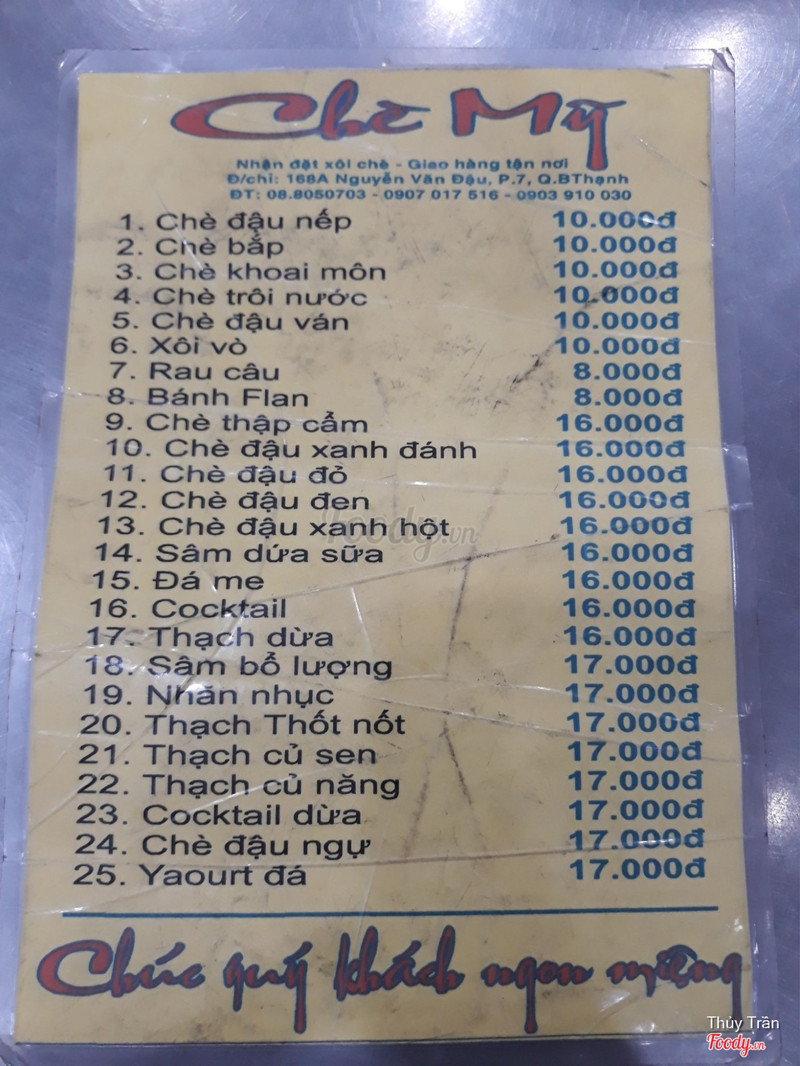 Chè Mỹ
Nhận đặt xôi chè - Giao hàng tận nơi
Đ/chỉ: 168A Nguyễn Văn Đậu, P.7, Q.BThạnh
ĐT: 08.8050703 - 0907 017 516 - 0903 910 030
1. Chè đậu nếp 10.000đ
2. Chè bắp 10.000đ
3. Chè khoai môn 10.000đ
4. Chè trôi nước 10.000đ
5. Chè đậu ván 10.000đ
6. Xôi vò 10.000đ
7. Rau câu 8.000đ
8. Bánh Flan 8.000đ
9. Chè thập cẩm 16.000đ
10. Chè đậu xanh đánh 16.000đ
11. Chè đậu đỏ 16.000đ
12. Chè đậu đen 16.000đ
13. Chè đậu xanh hột 16.000đ
Foody.vn
14. Sâm dứa sữa 16.000đ
15. Đá me 16.000đ
16. Cocktail 16.000đ
17. Thạch dừa 16.000đ
18. Sâm bổ lượng 17.000đ
19. Nhãn nhục 17.000đ
20. Thạch Thốt nốt 17.000đ
21. Thạch củ sen 17.000đ
22. Thạch củ năng 17.000đ
23. Cocktail dừa 17.000đ
24. Chè đậu ngự 17.000đ
25. Yaourt đá 17.000đ
Chúc quý khách ngon miệng
Thủy Trần
Foody.vn